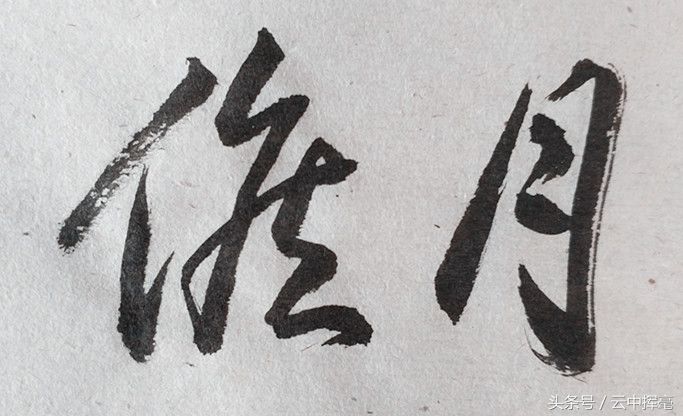 月
头条号 / 云中挥毫